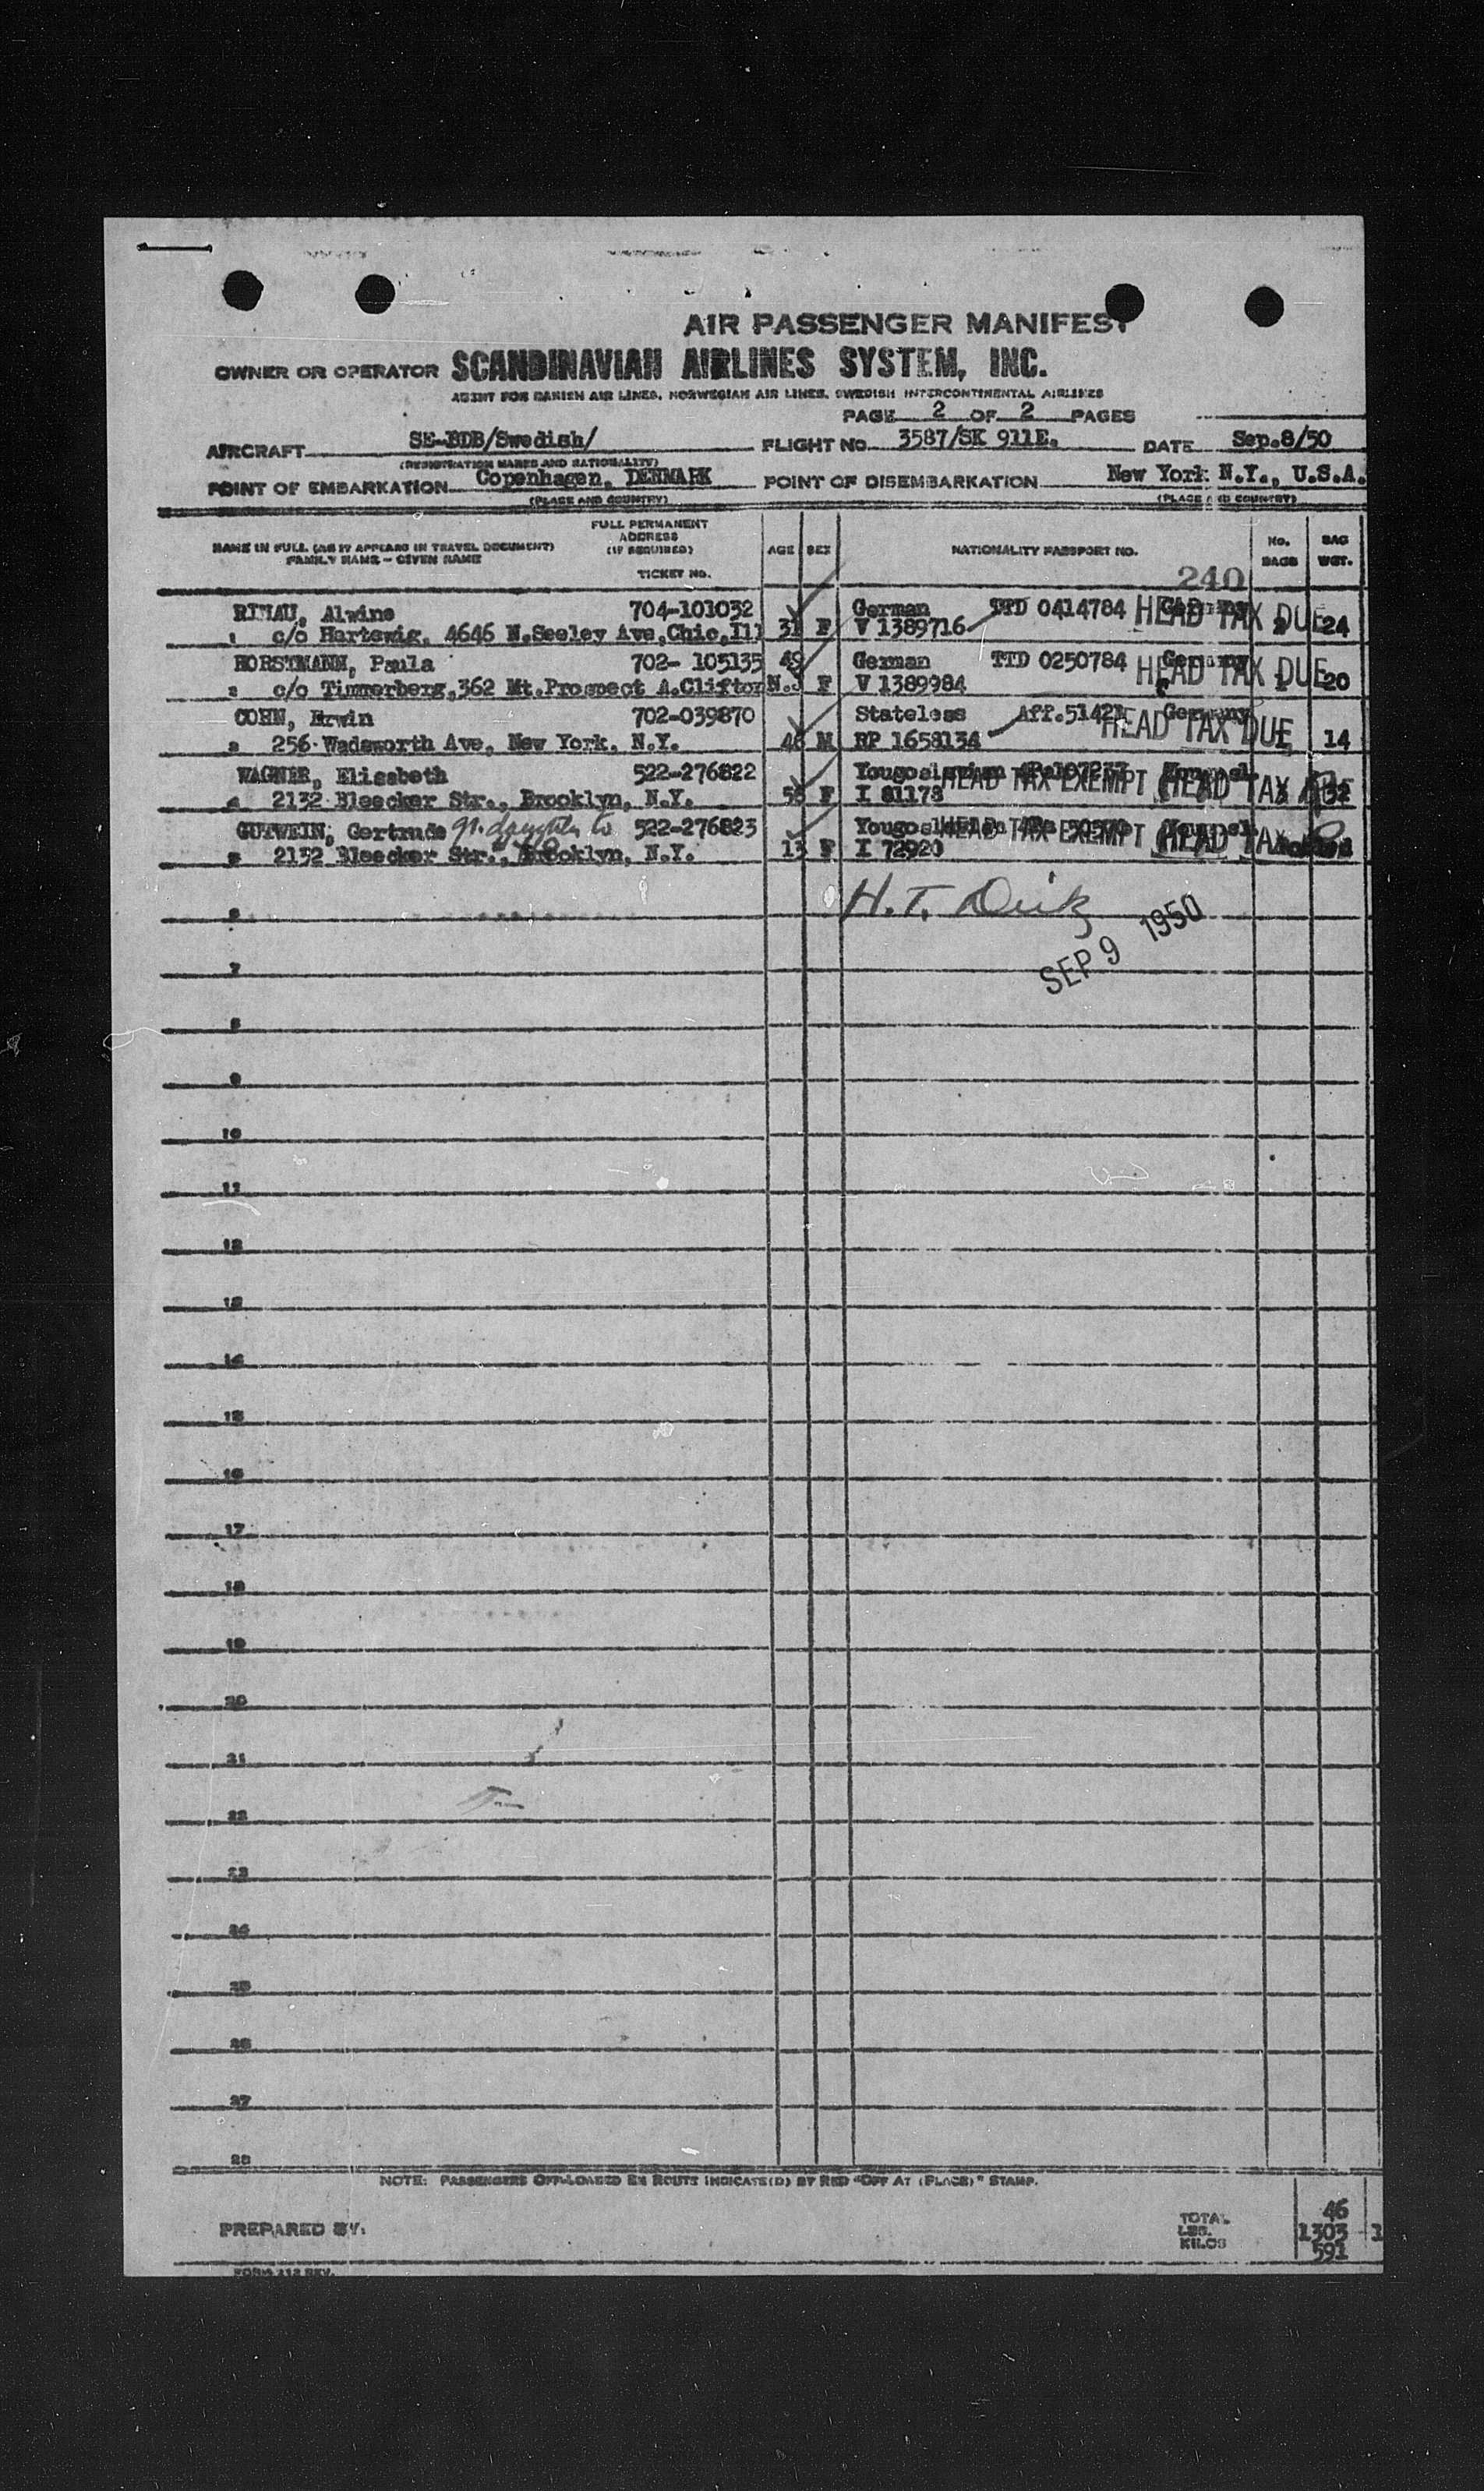 AIR PASSENGER MANIFEST
OWNER OR OPERATOR SCANDINAVIAN AIRLINES SYSTEM, INC.
AGENT FOR DANISH AIR LINES, NORWEGIAN AIR LINES, SWEDISH INTERCONTINENTAL AIRLINES
PAGE 2 OF 2 PAGES
AIRCRAFT SE-BDB/Swedish/ FLIGHT NO. 3587/SK 911E. DATE Sep.8/50
(REGISTRATION MARKS AND NATIONALITY)
POINT OF EMBARKATION Copenhagen, DENMARK POINT OF DISEMBARKATION New York N.Y., U.S.A.
(PLACE AND COUNTRY) (PLACE AND COUNTRY)
NAME IN FULL (AS IT APPEARS IN TRAVEL DOCUMENT) FAMILY NAME - GIVEN NAME FULL PERMANENT ADDRESS (IF REQUIRED) TICKET NO. AGE SEX NATIONALITY PASSPORT NO. NO. BAGS BAG WGT.
240
RIMAU, Alwine 704-101032 German TTD 0414784 Germany HEAD TAX DUE
1 c/o Hartewig, 4646 N.Seeley Ave,Chic,Ill 31 F V 1389716 24
HORSTMANN, Paula 702- 105135 49 German TTD 0250784 Germany HEAD TAX DUE
2 c/o Timmerberg,362 Mt.Prospect A.Clifton N.J F V 1389984 20
COHN, Erwin 702-039870 Stateless Aff. Germany HEAD TAX DUE
3 256 Wadsworth Ave, New York, N.Y. 48 M RP 1658134 14
WAGNER, Elisabeth 522-276822 HEAD TAX EXEMPT HEAD TAX
4 2132 Bleecker Str., Brooklyn, N.Y. 58 F I 81178 32
GUTWEIN, Gertrude gr. daughter to 522-276823 HEAD TAX EXEMPT HEAD TAX
5 2132 Bleecker Str., Brooklyn, N.Y. 13 F I 72920
6
SEP 9 1950
7
8
9
10
11
12
13
14
15
16
17
18
19
20
21
22
23
24
25
26
27
28
NOTE: PASSENGERS OFF-LOADED EN ROUTE INDICATE(D) BY RED "OFF AT (PLACE)" STAMP.
PREPARED BY:
TOTAL 46
LBS. 1303 1
KILOS 591
FORM 212 REV.